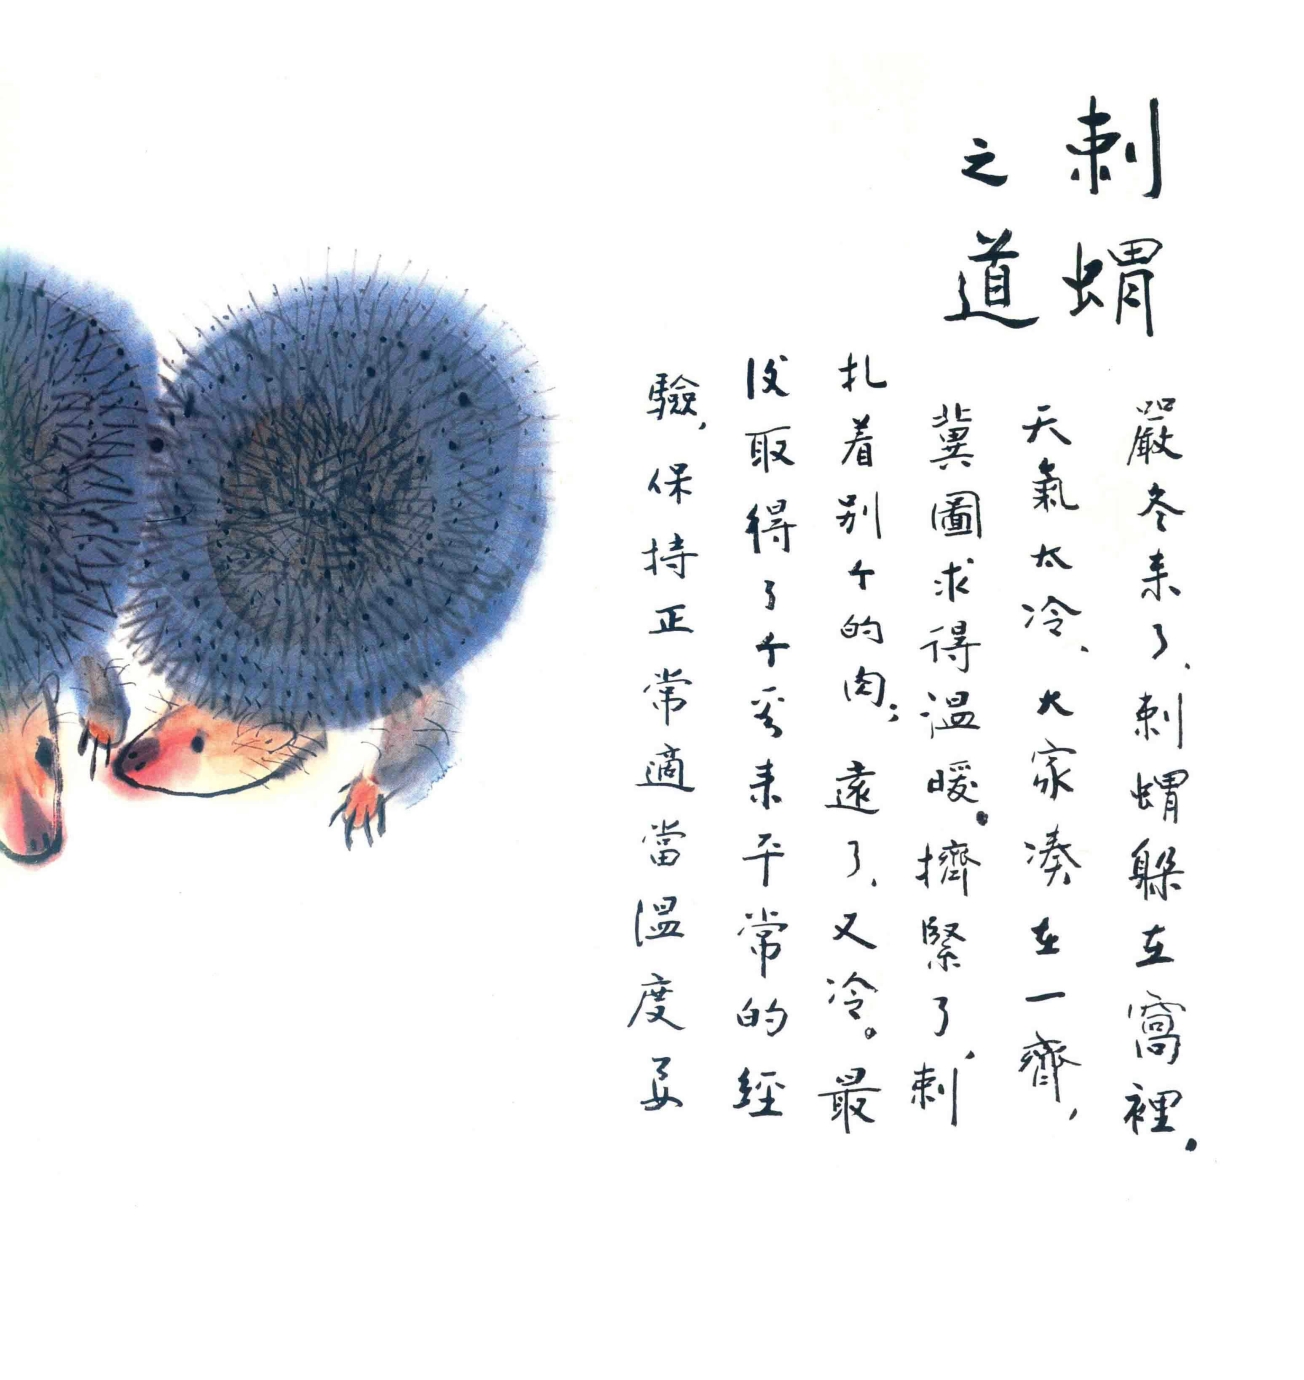 刺蝟
之道
嚴冬来了、刺蝟躲在窩裡。
天氣太冷、大家凑在一齊，
冀圖求得溫暖。擠緊了，刺
扎着别个的肉；遠了、又冷。最
後取得了个看来平常的經
驗，保持正常適當溫度要